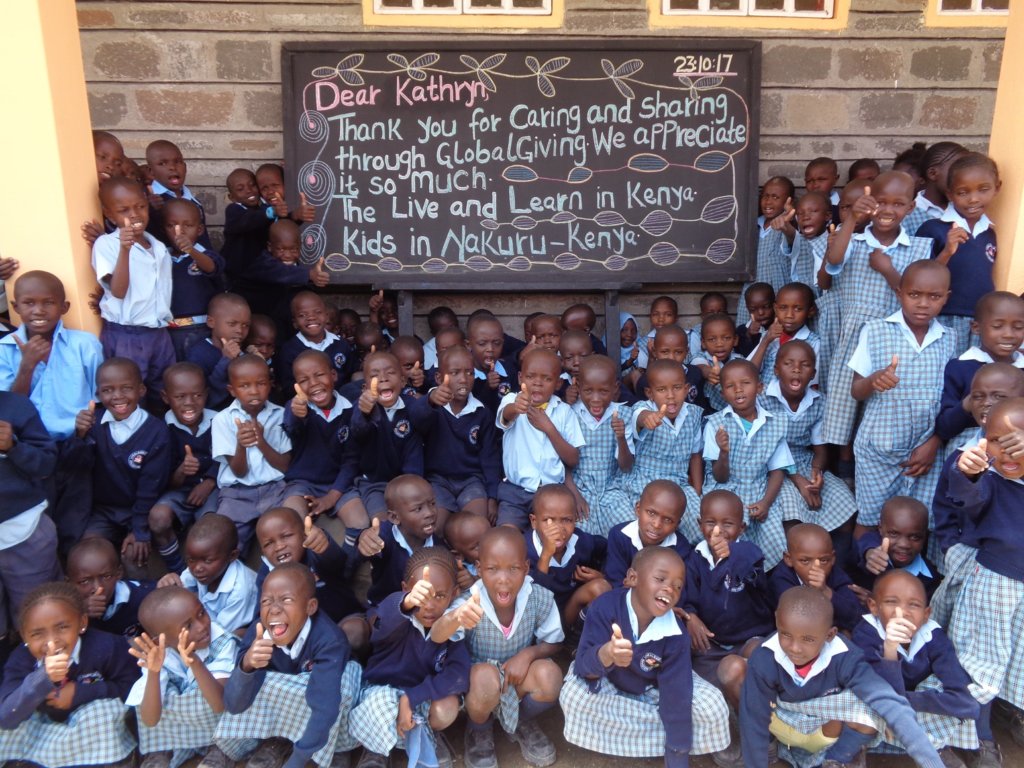 23:10:17
Dear Kathryn,
Thank you for Caring and sharing
through GlobalGiving. We appreciate
it so much.
The Live and Learn in Kenya.
Kids in Nakuru-Kenya.